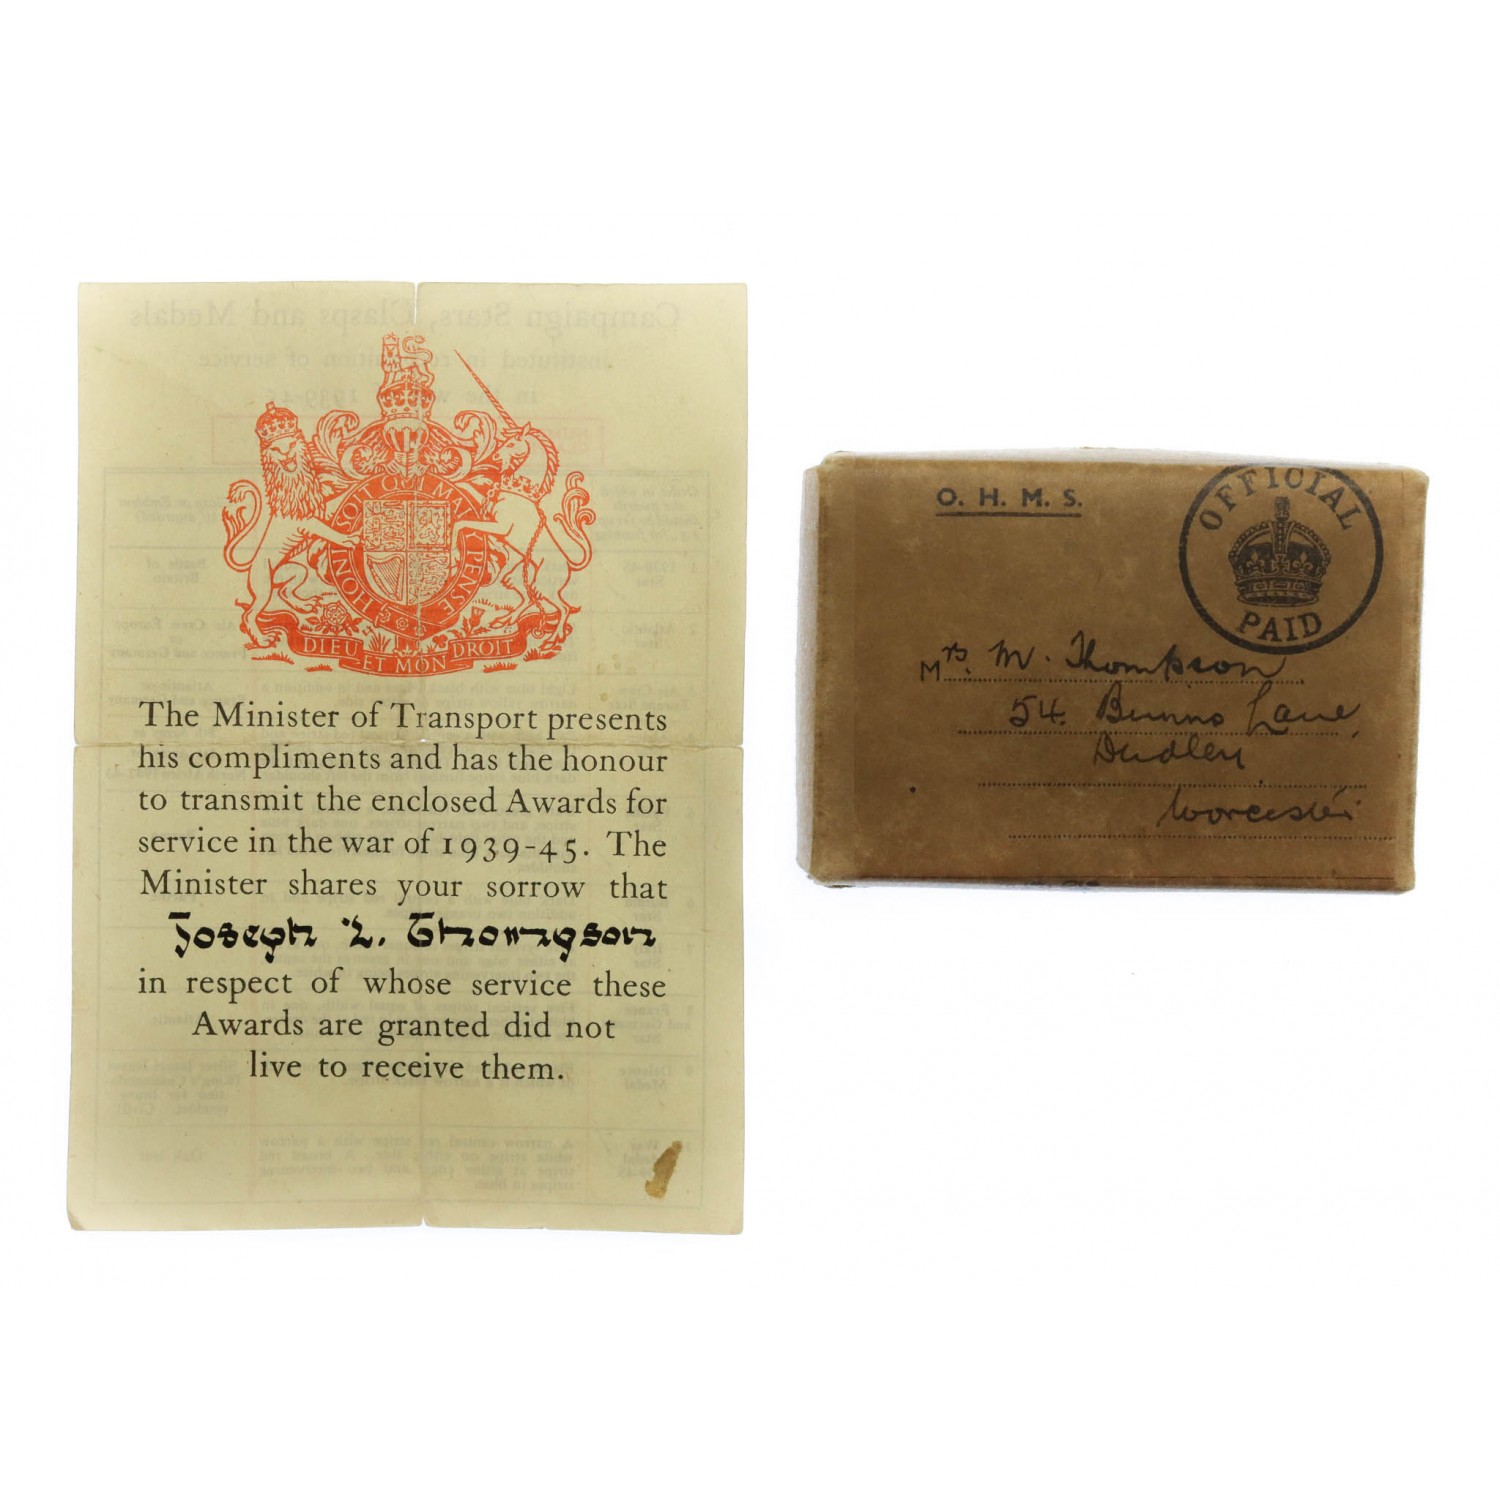 HONI SOIT QUI MAL Y PENSE
DIEU ET MON DROIT
The Minister of Transport presents
his compliments and has the honour
to transmit the enclosed Awards for
service in the war of 1939-45. The
Minister shares your sorrow that
Joseph L. Thompson
in respect of whose service these
Awards are granted did not
live to receive them.
O. H. M. S.
OFFICIAL
PAID
Mrs. M. Thompson
54. Bunns Lane,
Dudley
Worcester